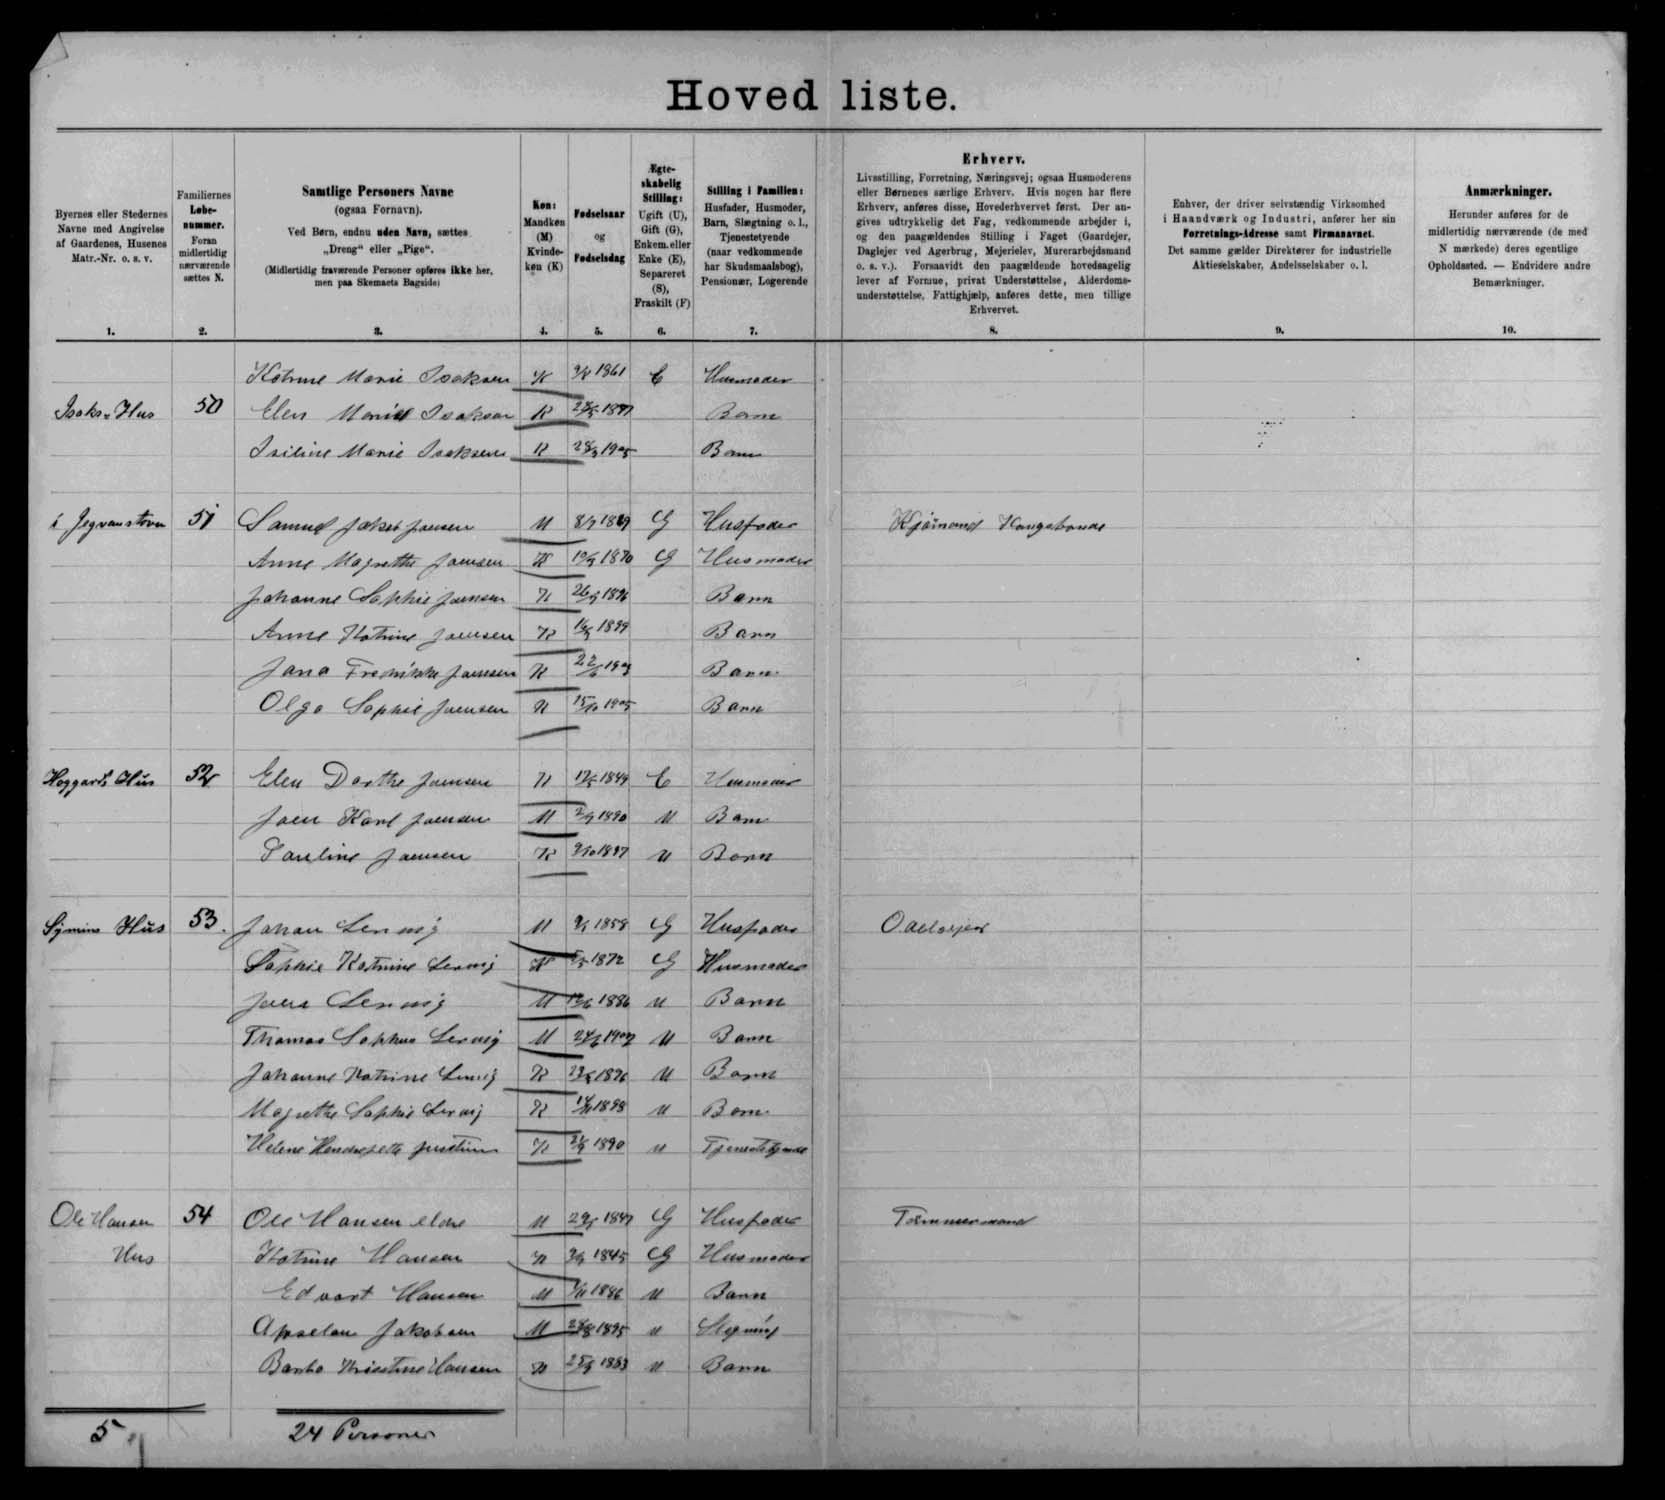 Hoved liste.
Byernes eller Stedernes Navne med Angivelse af Gaardenes, Husenes Matr.-Nr. o. s. v.
Familiernes Løbe-nummer. Foran midlertidig nærværende sættes N.
Samtlige Personers Navne
(ogsaa Fornavn).
Ved Børn, endnu uden Navn, sættes „Dreng“ eller „Pige“.
(Midlertidig fraværende Personer opføres ikke her, men paa Skemaets Bagside)
Køn: Mandkøn (M) Kvinde-køn (K)
Fødselsaar og Fødselsdag
Ægte-skabelig Stilling: Ugift (U), Gift (G), Enkem. eller Enke (E), Separeret (S), Fraskilt (F)
Stilling i Familien: Husfader, Husmoder, Barn, Slægtning o. l., Tjenestetyende (naar vedkommende har Skudsmaalsbog), Pensionær, Logerende
Erhverv.
Livsstilling, Forretning, Næringsvej; ogsaa Husmoderens
eller Børnenes særlige Erhverv. Hvis nogen har flere
Erhverv, anføres disse, Hovederhvervet først. Der an-
gives udtrykkelig det Fag, vedkommende arbejder i,
og den paagældendes Stilling i Faget (Gaardejer,
Daglejer ved Agerbrug, Mejerielev, Murerarbejdsmand
o. s. v.). Forsaavidt den paagældende hovedsagelig
lever af Formue, privat Understøttelse, Alderdoms-
understøttelse, Fattighjælp, anføres dette, men tillige
Erhvervet.
Enhver, der driver selvstændig Virksomhed
i Haandværk og Industri, anfører her sin
Forretnings-Adresse samt Firmanavnet.
Det samme gælder Direktører for industrielle
Aktieselskaber, Andelsselskaber o. l.
Anmærkninger.
Herunder anføres for de
midlertidig nærværende (de med
N mærkede) deres egentlige
Opholdssted. — Endvidere andre
Bemærkninger.
1. 2. 3. 4. 5. 6. 7. 8. 9. 10.
Katrine Marie Isaksen K 1861 E Husmoder
Isaks Hus 50 Elen Isaksen K Barn
Marie Isaksen K 1905 Barn
i 51 Samuel Jakob Joensen M G Husfader Kongsbonde
Anne Magrethe Joensen K 1870 G Husmoder
Johanne Sophie Joensen K 1896 Barn
Anne Katrine Joensen K 1899 Barn
Fredrikke Joensen K Barn
Olga Sophie Joensen K 15/10 1905 Barn
Hus 52 Elen Dorthe Joensen K 1849 E Husmoder
Joen Karl Joensen M 1890 U Barn
Pauline Joensen K U Barn
Hus 53. Johan Lervig M 1858 G Husfader Odelsejer
Sophie Katrine Lervig K 1872 G Husmoder
Joen Lervig M 1886 U Barn
Thomas Sophus Lervig M U Barn
Johanne Katrine Lervig K 1896 U Barn
Magrethe Sophie Lervig K 1898 U Barn
Helene K 1890 U Tjenestetyende
Ole Hansen 54 Ole Hansen eldre M 1847 G Husfader Tømmermand
Hus Katrine Hansen K 1845 G Husmoder
Edvart Hansen M 1886 U Barn
Jakobsen M 1895 U
Kristine Hansen K 1883 U Barn
5 24 Personer